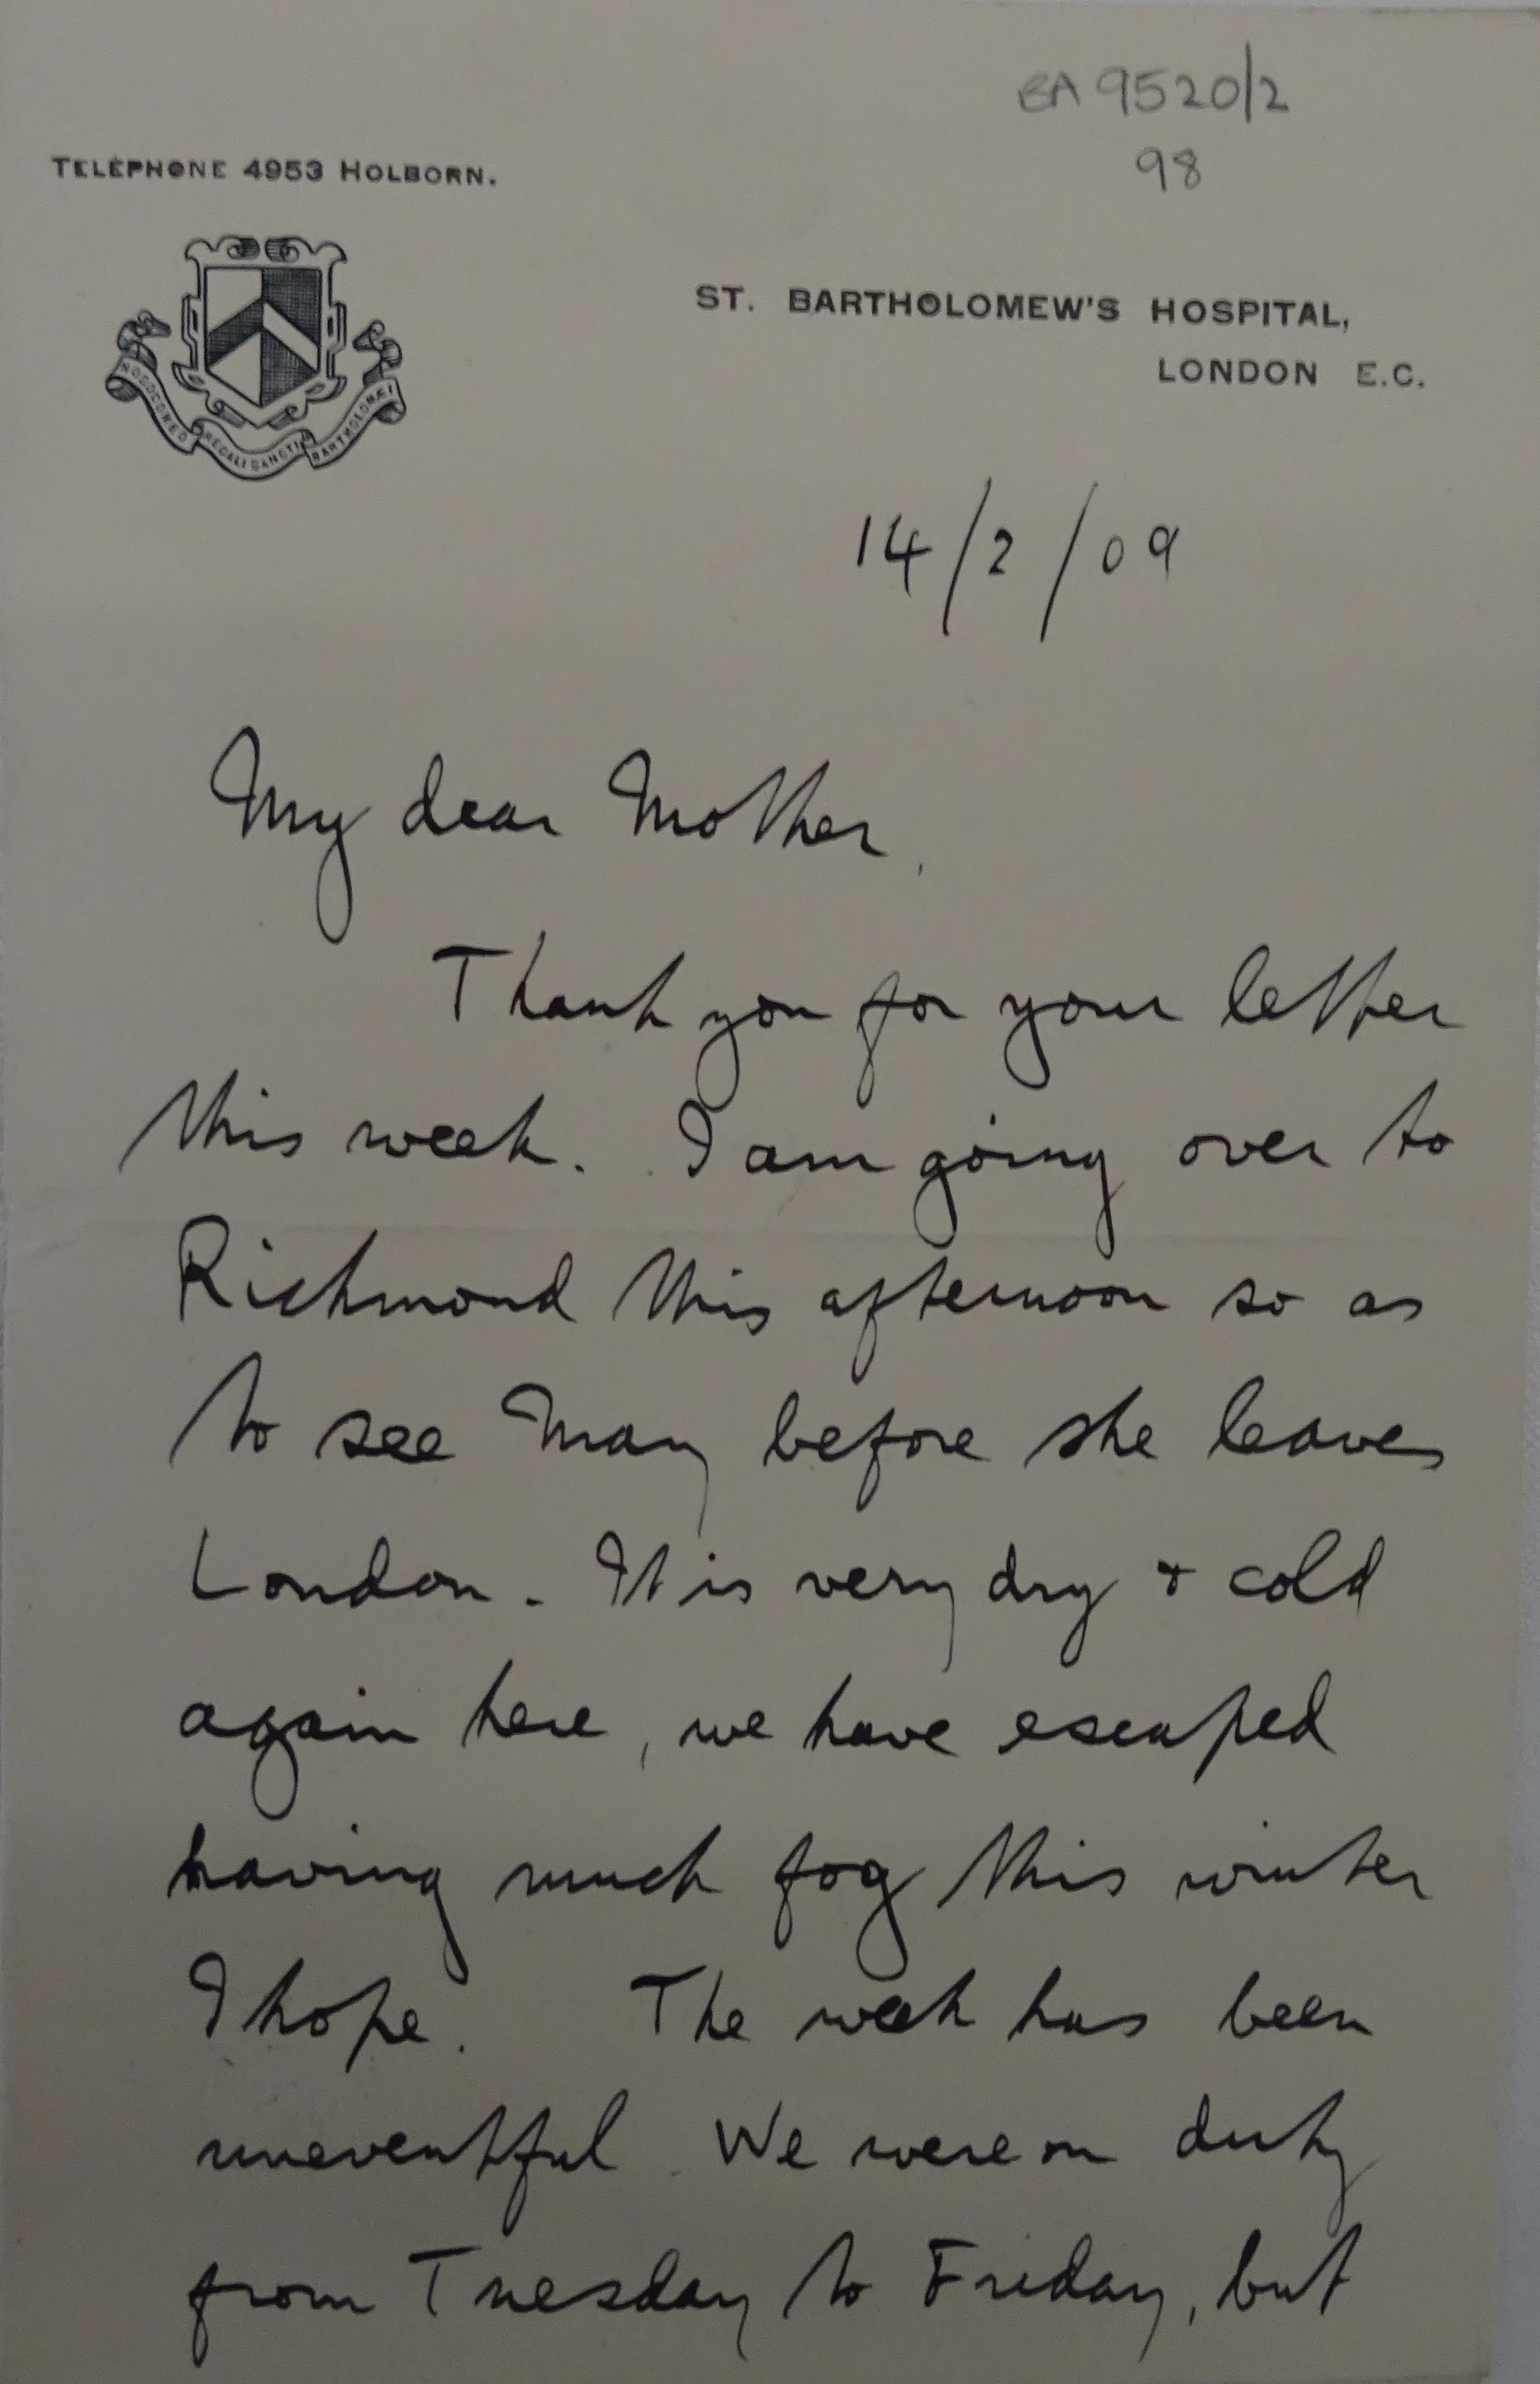 BA 9520/2
98
TELEPHONE 4953 HOLBORN.
NOSOCOMED REGALI SANCTI BARTHOLOMÆI
ST. BARTHOLOMEW'S HOSPITAL,
LONDON E.C.
14/2/09
My dear Mother,
Thank you for your letter
this week. I am going over to
Richmond this afternoon so as
to see May before she leaves
London. It is very dry & cold
again here, we have escaped
having much fog this winter
I hope. The week has been
uneventful. We were on duty
from Tuesday to Friday, but